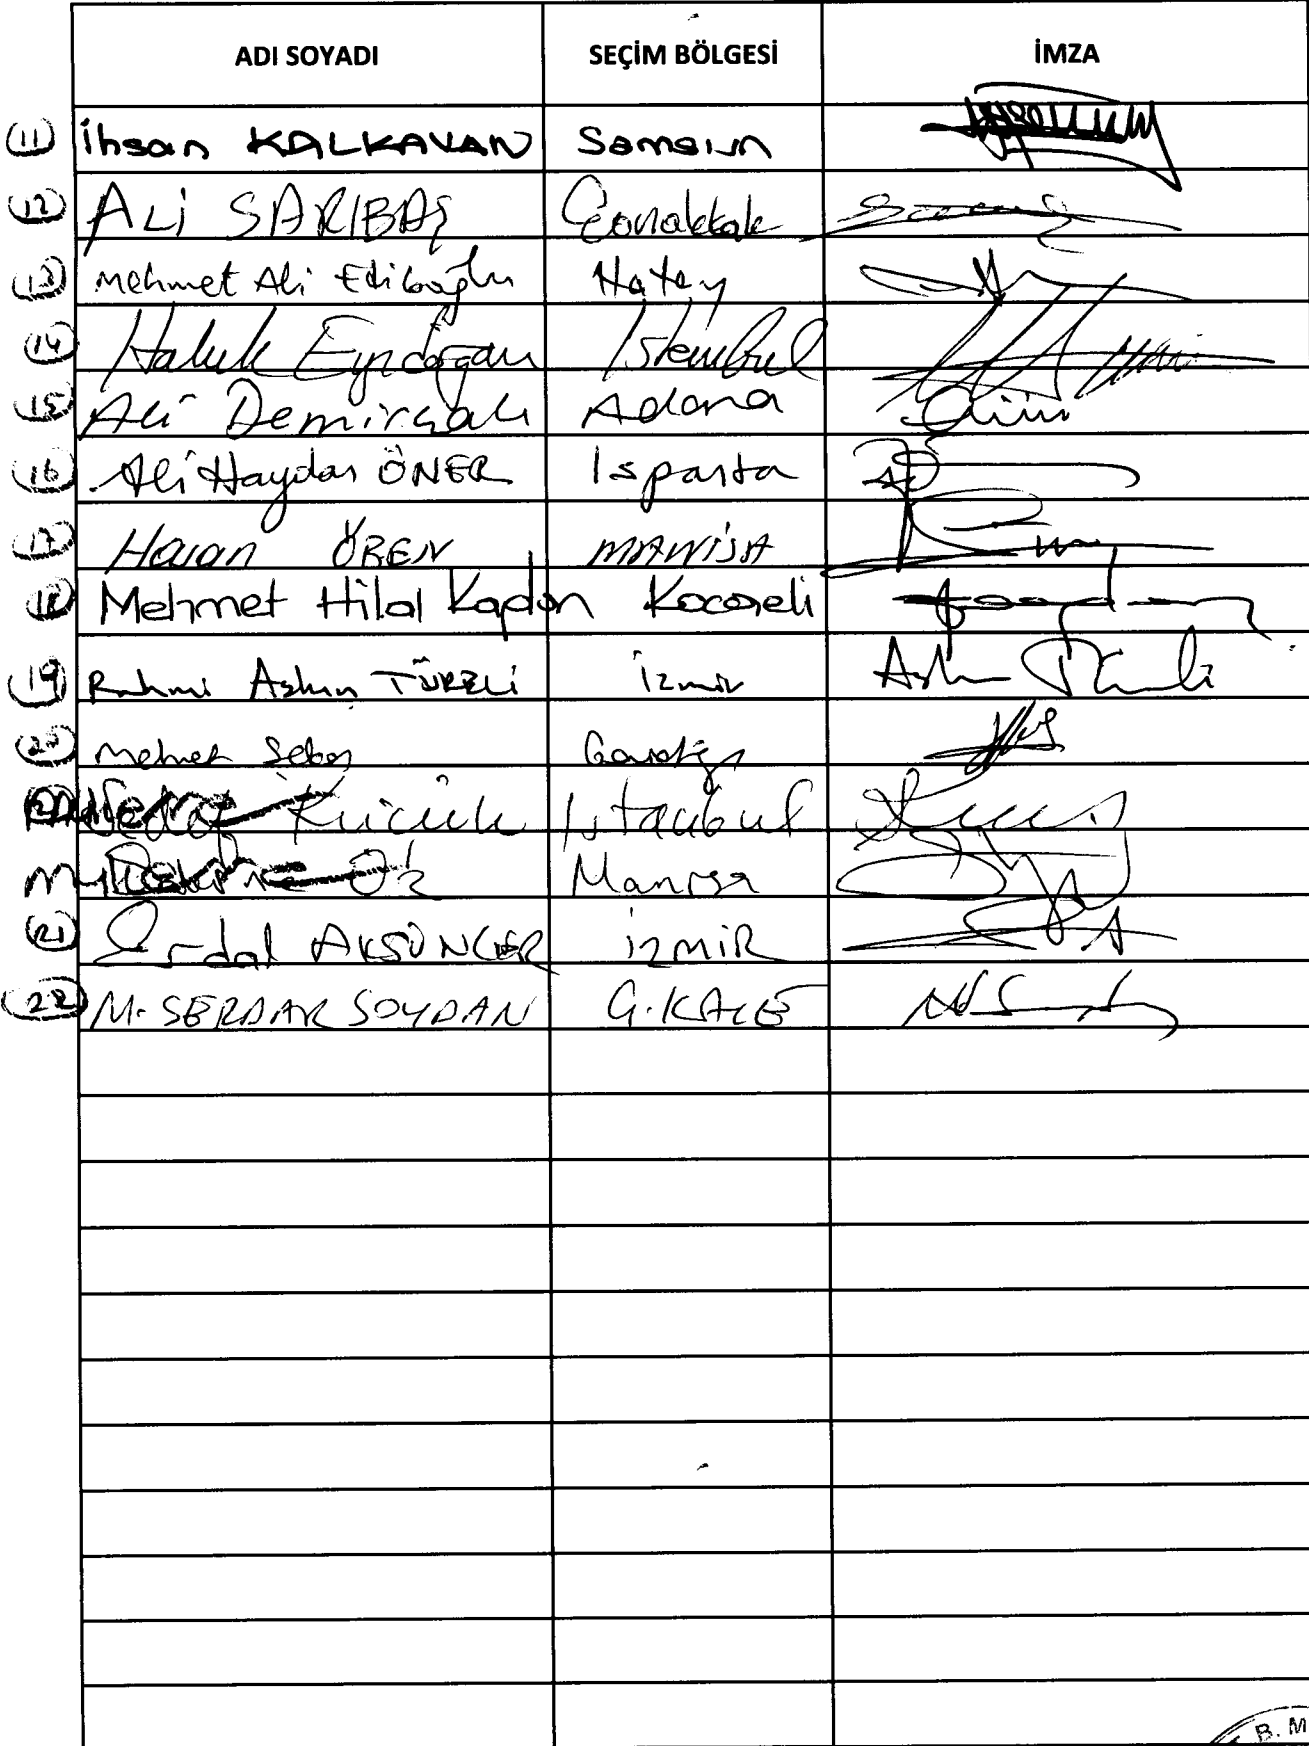 ADI SOYADI SEÇİM BÖLGESİ İMZA
(11) İhsan KALKAVAN Samsun
(12) ALİ SARIBAŞ Çanakkale
(13) Mehmet Ali Ediboğlu Hatay
(14) Haluk Eyidoğan İstanbul
(15) Ali Demirçalı Adana
(16) Ali Haydar ÖNER Isparta
(17) Hasan ÖREN MANİSA
(18) Mehmet Hilal Kaplan Kocaeli
(19) Rahmi Aşkın TÜRELİ İzmir
(20) Mehmet Şeker Gaziantep
Küçük İstanbul
Öz Manisa
(21) Erdal AKSÜNGER İZMİR
(22) M. SERDAR SOYDAN Ç.KALE
B. M